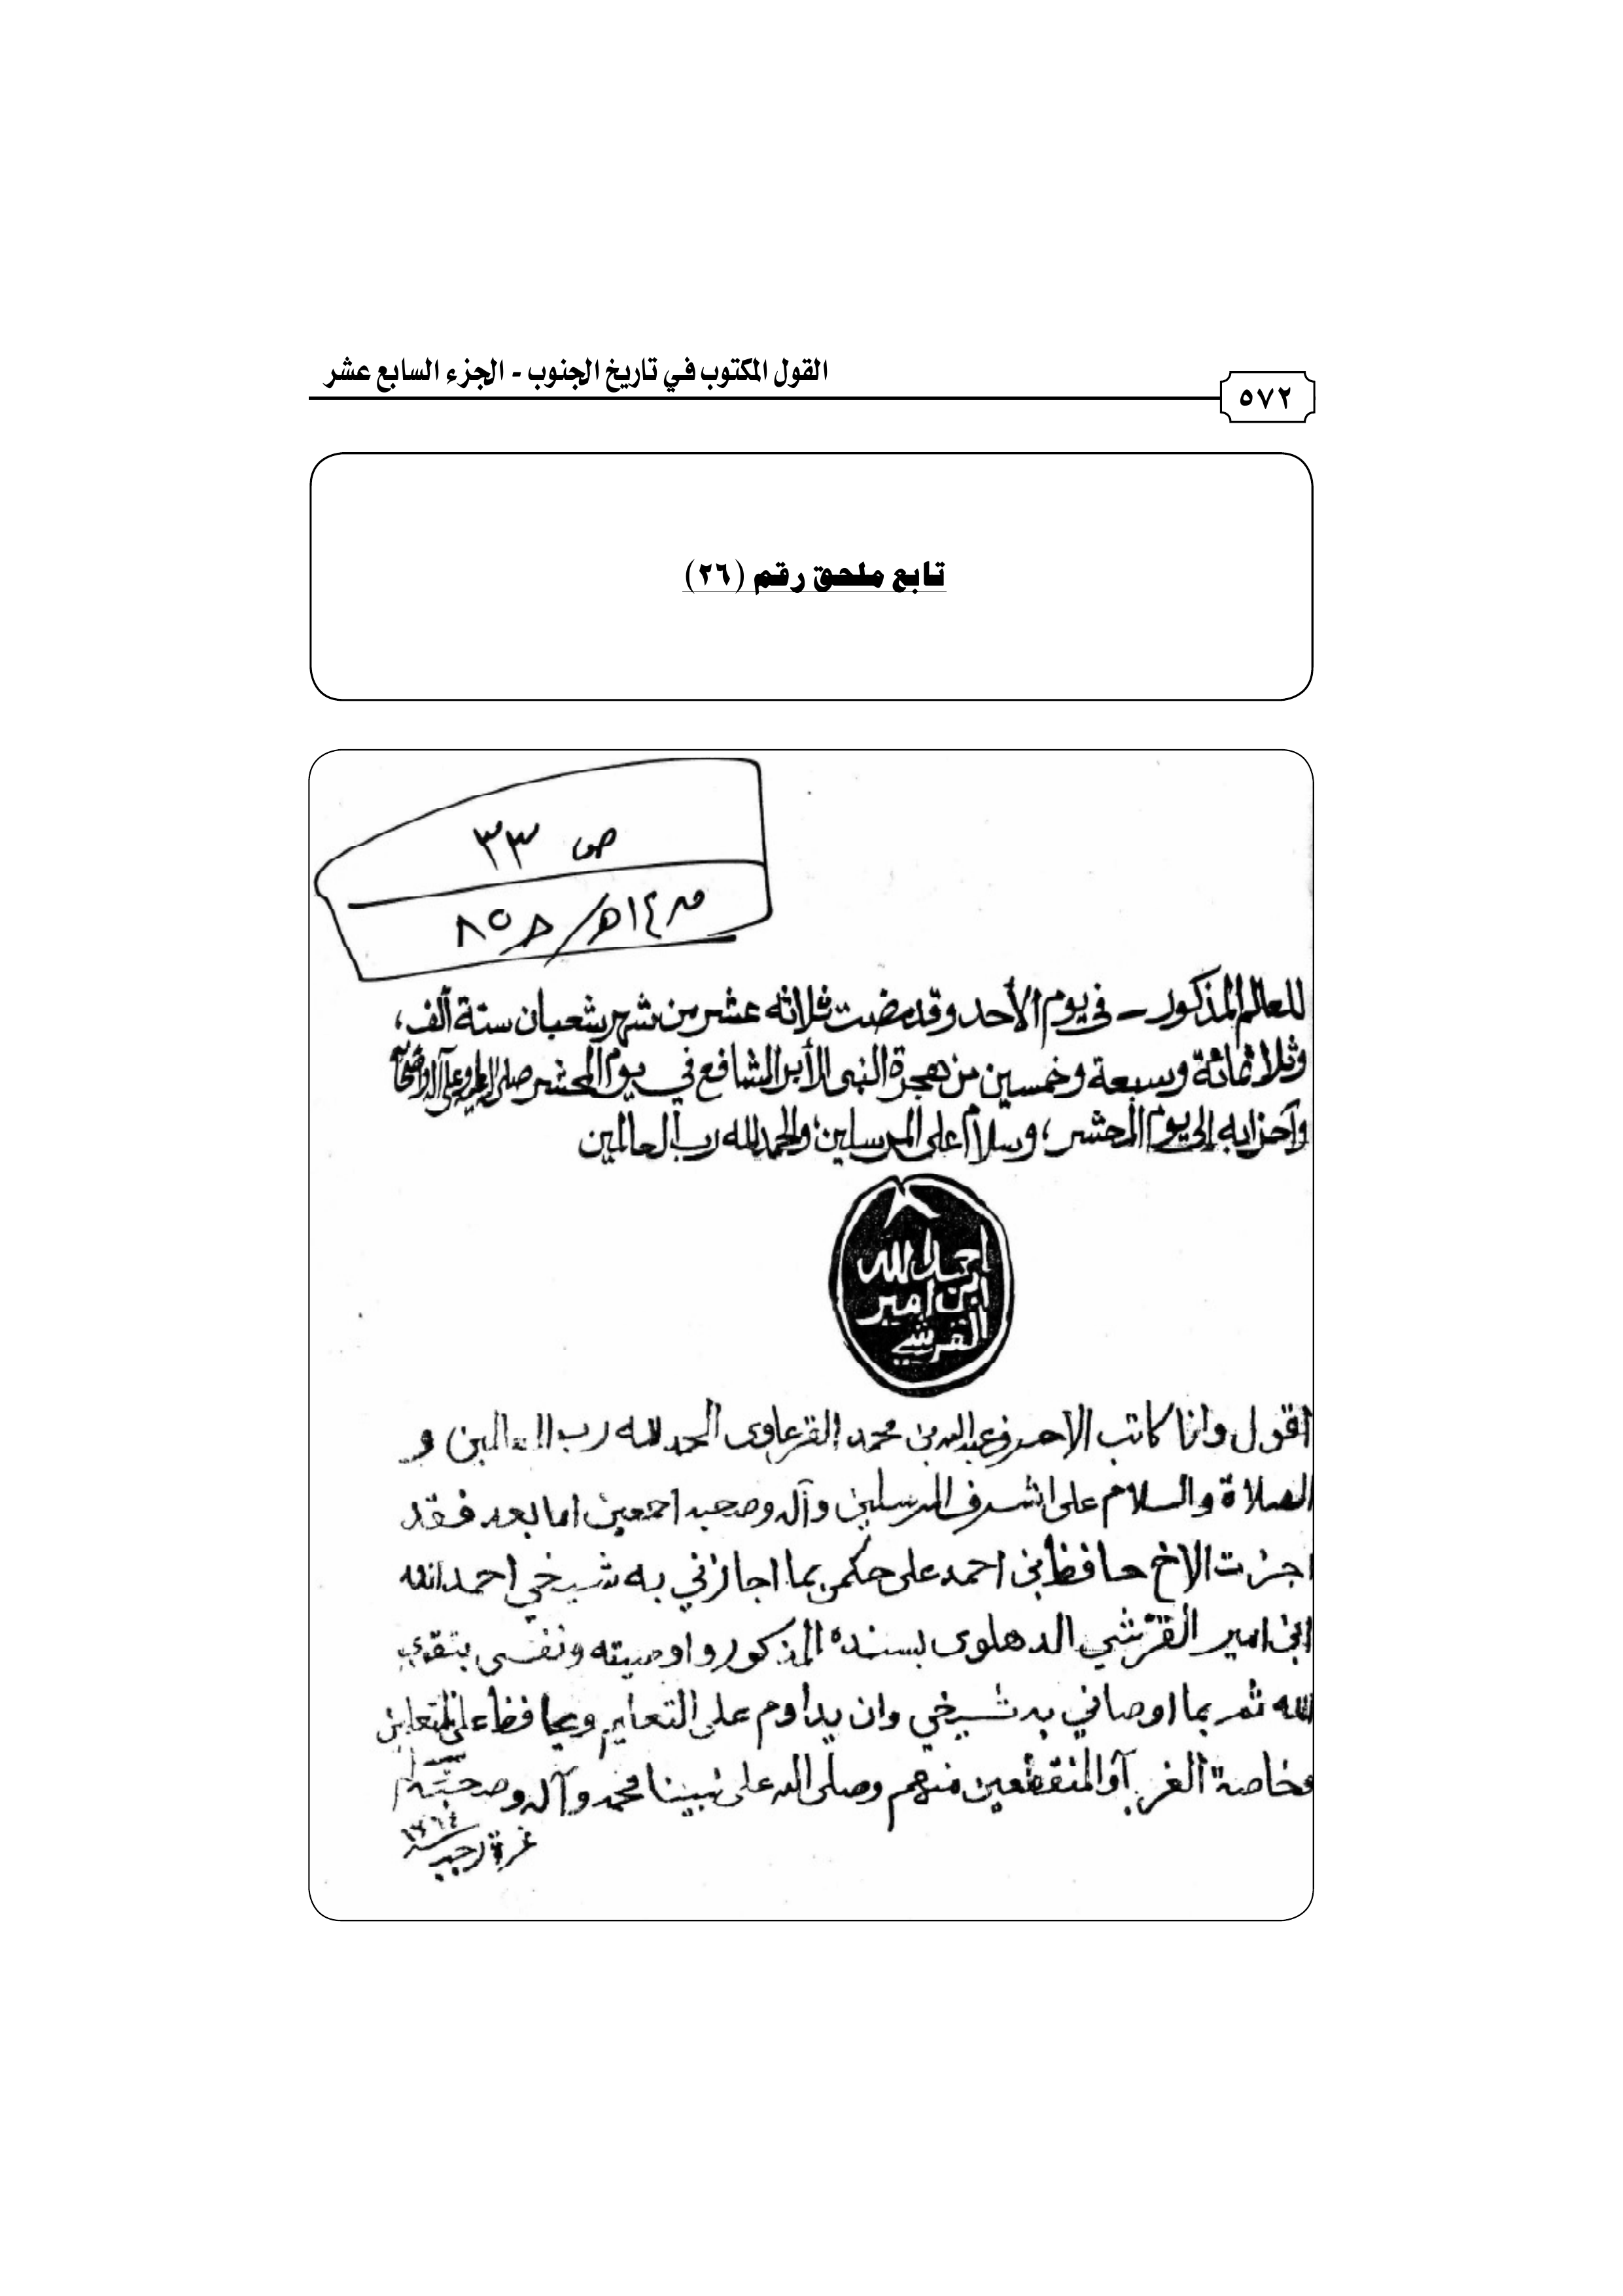 القول المكتوب في تاريخ الجنوب - الجزء السابع عشر
٥٧٢
تابع ملحق رقم (٢٦)
ص ٣٣
للعالم المذكور - في يوم الأحد وقد مضت ثلاثة عشر من شهر شعبان سنة ألف،
وثلاثمائة وسبعة وخمسين من هجرة النبي الأبر الشافع في يوم المحشر صلى الله عليه وعلى آله وأصحابه
وأحزابه إلى يوم المحشر، وسلام على المرسلين، والحمد لله رب العالمين
احمد الله
ابن امير
القرشي
اقول وانا كاتب الاحرف عبدالله بن محمد القرعاوى الحمد لله رب العالمين و
الصلاة والسلام على اشرف المرسلين وآله وصحبه اجمعين اما بعد فقد
اجزت الاخ حافظ بن احمد على حكمى بما اجازني به شيخي احمد الله
ابن امير القرشي الدهلوى بسنده المذكور واوصيته ونفسى بتقوى
الله ثم بما اوصاني به شيخي وان يداوم على التعليم ويحافظ على المتعلمين
وخاصة الغربآء المنقطعين منهم وصلى الله على نبينا محمد وآله وصحبه
غرة رجب